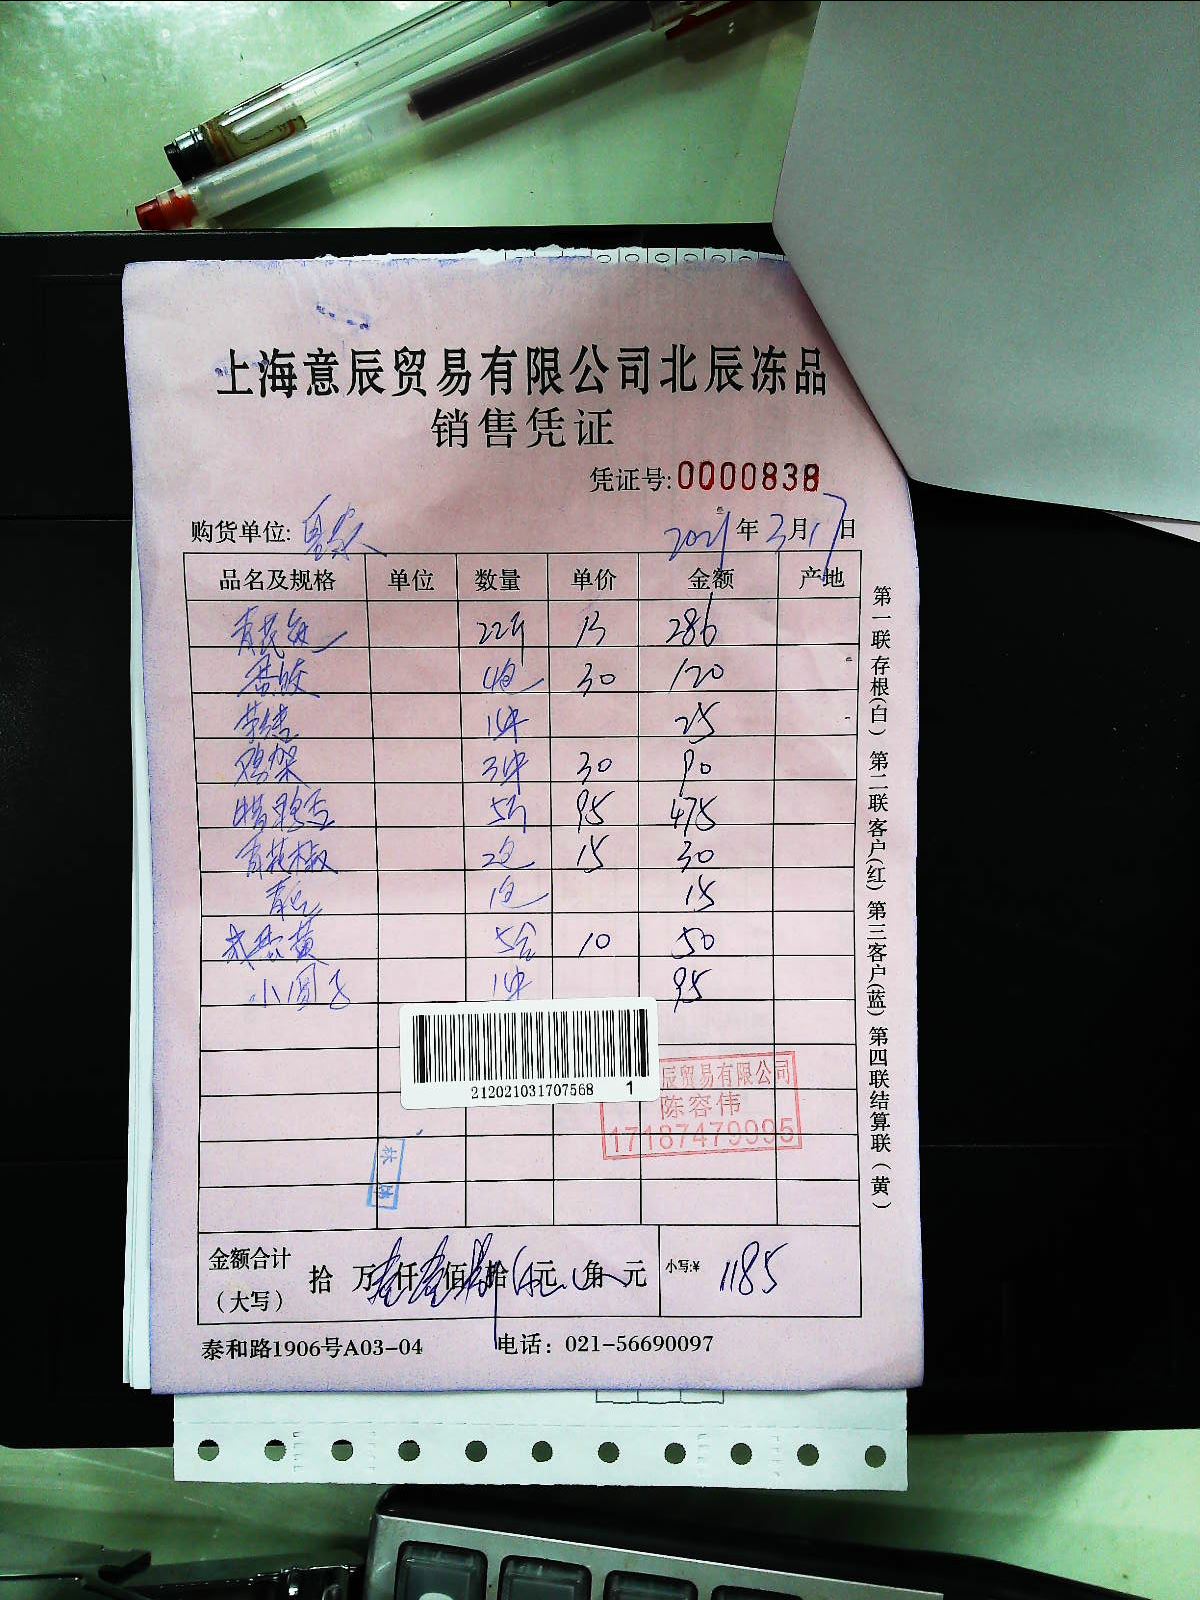 上海意辰贸易有限公司北辰冻品
销售凭证
凭证号:0000838
购货单位:
2021年3月17日
品名及规格 单位 数量 单价 金额 产地
22斤 13 286
4包 30 120
1件 25
鸡架 3件 30 90
5斤 95 475
青花椒 2包 15 30
1包 15
5合 10 50
小圆子 1件 95
212021031707568 1
辰贸易有限公司
陈容伟
17187479995
金额合计(大写) 拾 万 仟 佰 拾 元 角 元 小写:¥ 1185
泰和路1906号A03-04 电话:021-56690097
第一联存根(白) 第二联客户(红) 第三客户(蓝) 第四联结算联(黄)